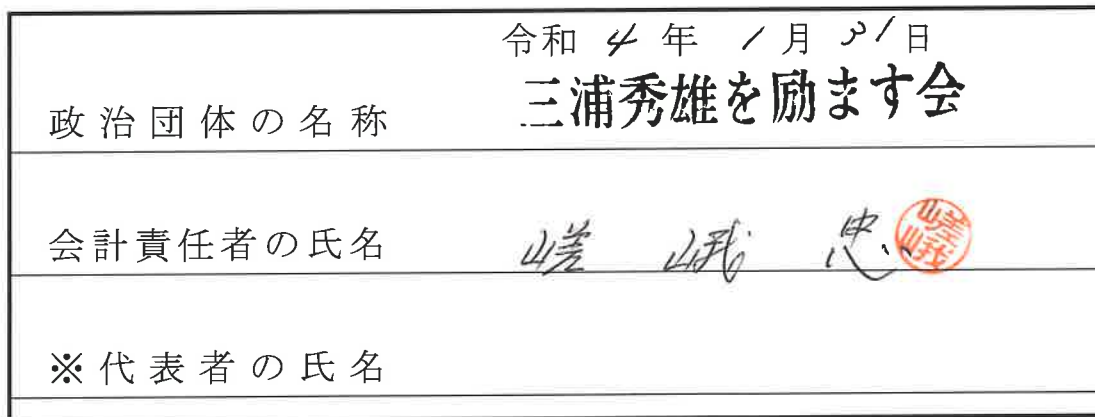 令和 4 年 1 月 31 日
政治団体の名称 三浦秀雄を励ます会
会計責任者の氏名 嵯峨 忠 嵯峨
※代表者の氏名